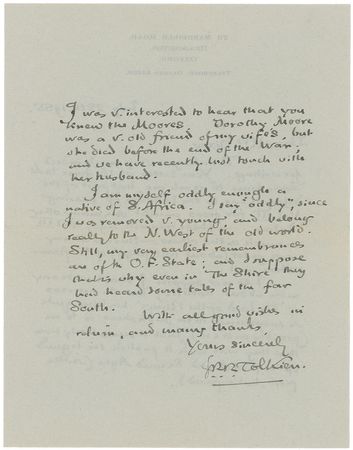 I was v. interested to hear that you
knew the Moores. Dorothy Moore
was a v. old friend of my wife's, but
she died before the end of the War;
and we have recently lost touch with
her husband.
I am myself oddly enough a
native of S. Africa. I say "oddly", since
I was removed v. young, and belong
really to the N. West of the old world.
Still, my very earliest remembrances
are of the O. F. State; and I suppose
that is why even in "The Shire" they
had heard some tales of the far
South.
With all good wishes in
return, and many thanks,
Yours sincerely
J.R.R. Tolkien.